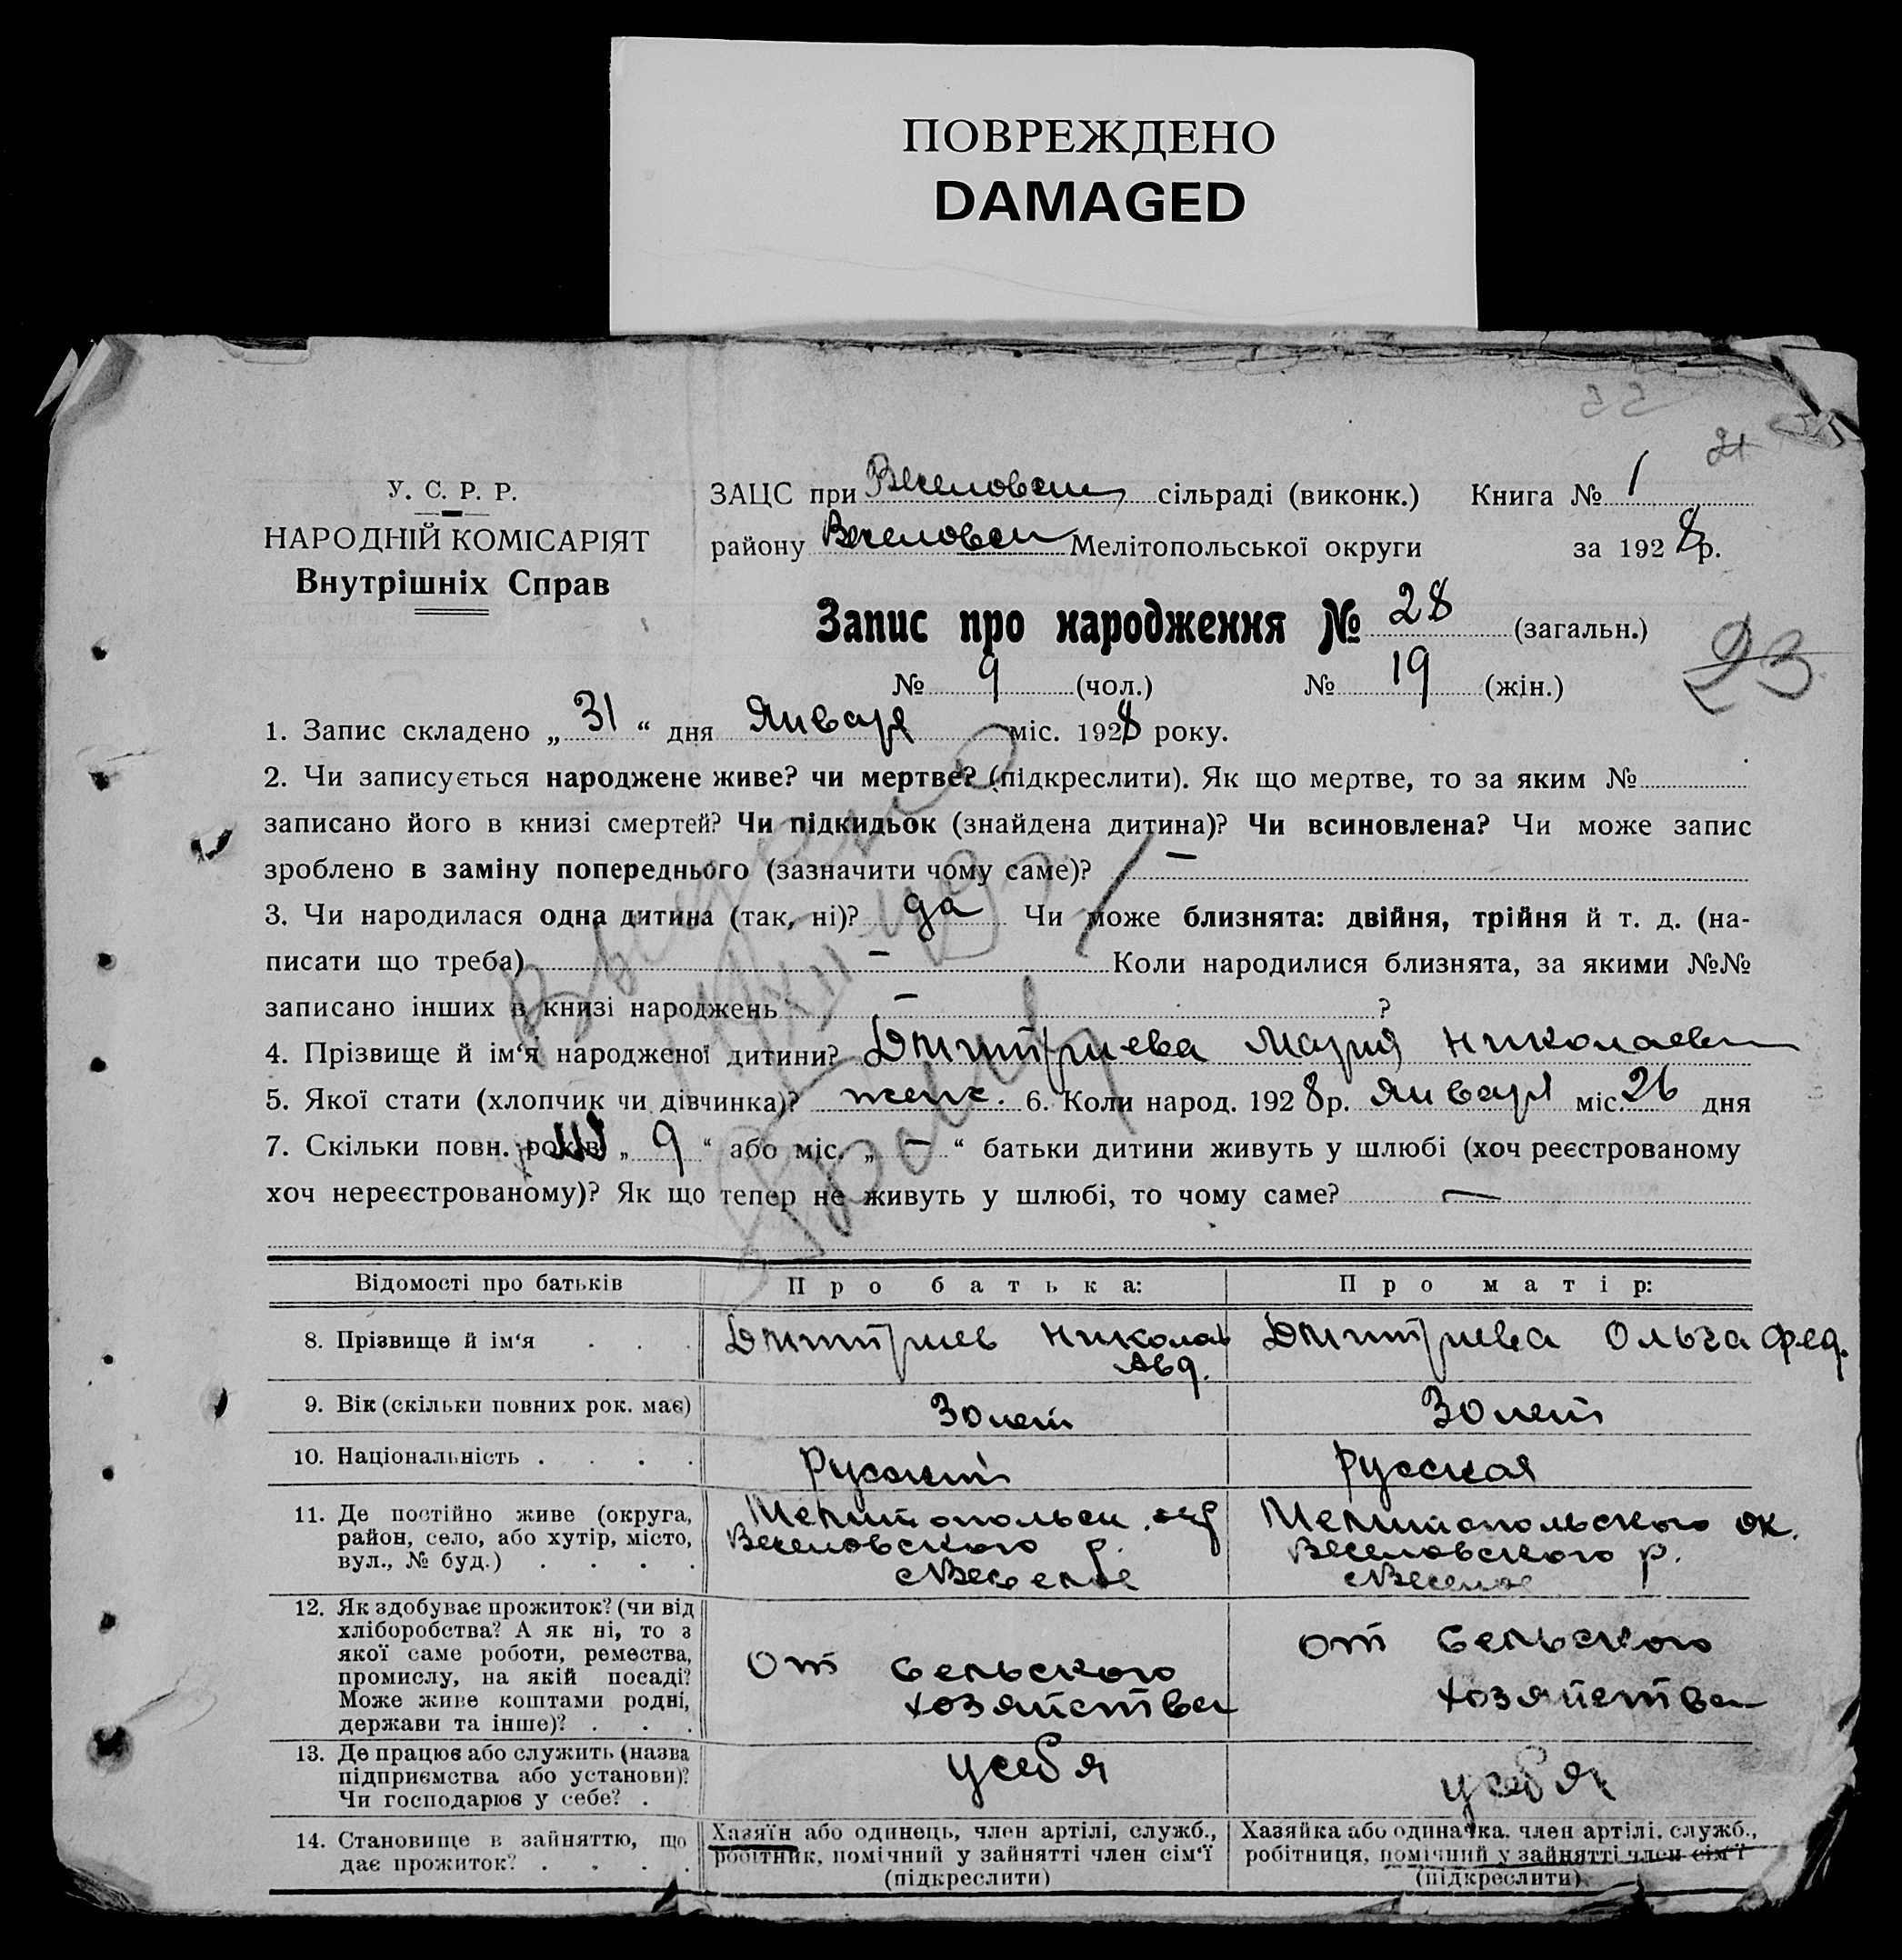 ПОВРЕЖДЕНО
DAMAGED
22
21
У. С. Р. Р.
НАРОДНІЙ КОМІСАРІЯТ
Внутрішніх Справ
ЗАЦС при Веселовском сільраді (виконк.) Книга № 1
району Веселовск Мелітопольської округи за 1928 р.
Запис про народження № 28 (загальн.)
№ 9 (чол.) № 19 (жін.)
23
1. Запис складено „ 31 “ дня Января міс. 1928 року.
2. Чи записується народжене живе? чи мертве? (підкреслити). Як що мертве, то за яким №
записано його в книзі смертей? Чи підкидьок (знайдена дитина)? Чи всиновлена? Чи може запис
зроблено в заміну попереднього (зазначити чому саме)? —
3. Чи народилася одна дитина (так, ні)? да Чи може близнята: двійня, трійня й т. д. (на-
писати що треба) — Коли народилися близнята, за якими №№
записано інших в книзі народжень — ?
4. Прізвище й ім‘я народженої дитини? Дмитриева Мария Николаевн
5. Якої стати (хлопчик чи дівчинка)? женс. 6. Коли народ. 1928 р. Января міс. 26 дня
7. Скільки повн. років „ 9 “ або міс. „ — “ батьки дитини живуть у шлюбі (хоч реєстрованому
хоч нереєстрованому)? Як що тепер не живуть у шлюбі, то чому саме? —
Выдано
Відомості про батьків Про батька: Про матір:
8. Прізвище й ім‘я . . . Дмитриев Николай Авд. Дмитриева Ольга Фед.
9. Вік (скільки повних рок. має) 30 лет 30 лет
10. Національність . . . . Русский русская
11. Де постійно живе (округа,
район, село, або хутір, місто,
вул., № буд.) . . . .
Мелитопольск. окр
Веселовского р.
с Веселое
Мелитопольского ок.
Веселовского р.
с Веселое
12. Як здобуває прожиток? (чи від
хліборобства? А як ні, то з
якої саме роботи, ремества,
промислу, на якій посаді?
Може живе коштами родні,
держави та інше)? . . .
От сельского
хозяйства
от сельского
хозяйства
13. Де працює або служить (назва
підприємства або установи)?
Чи господарює у себе? .
у себя
у себя
14. Становище в зайняттю, що
дає прожиток? . . . .
Хазяїн або одинець, член артілі, служб.,
робітник, помічний у зайнятті член сім‘ї
(підкреслити)
Хазяйка або одиначка, член артілі, служб.,
робітниця, помічний у зайнятті член сім‘ї
(підкреслити)